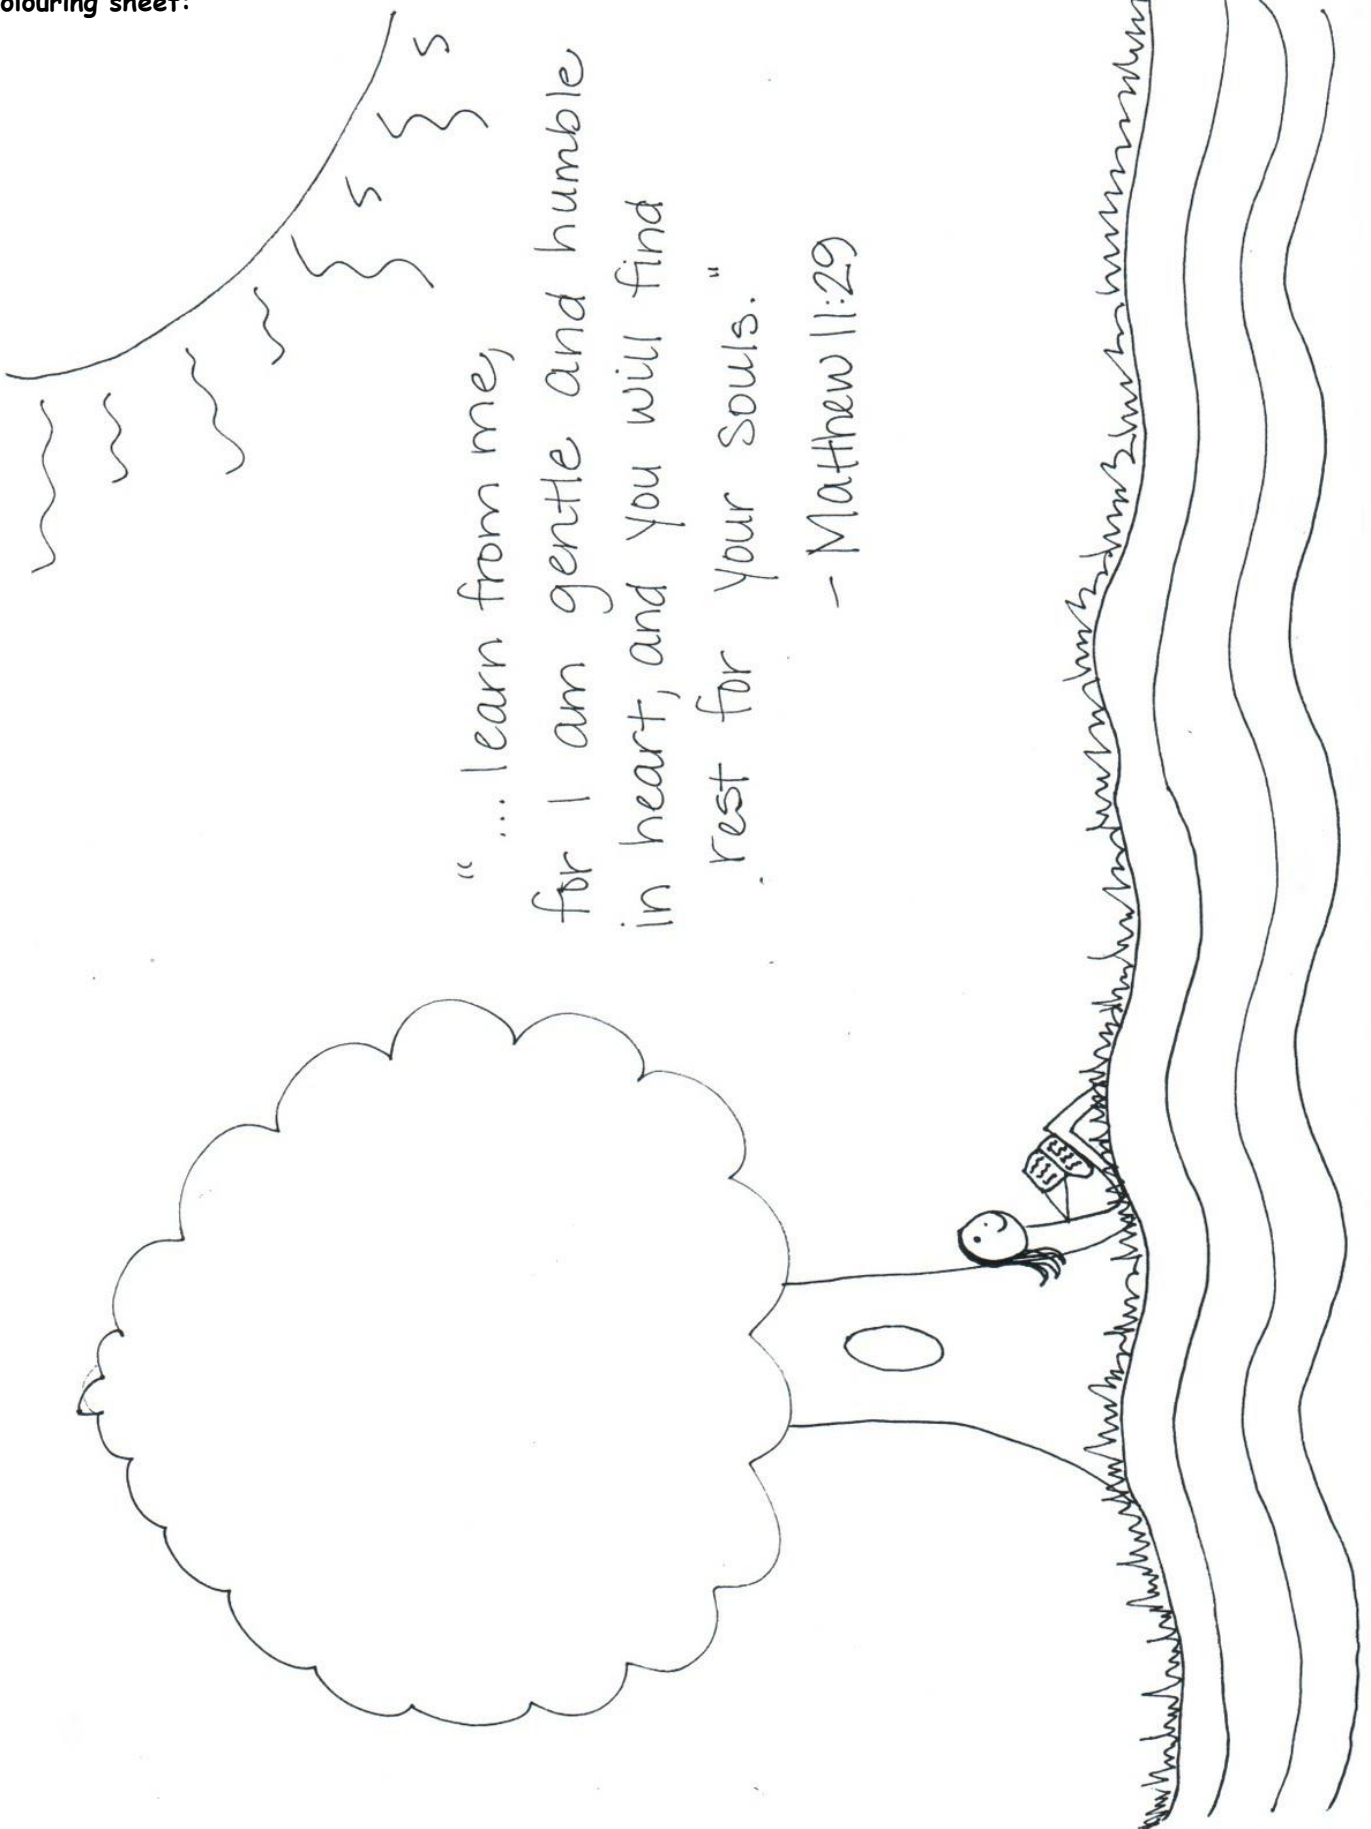 olouring sheet:
"... learn from me,
for I am gentle and humble
in heart, and you will find
rest for your souls."
- Matthew 11:29